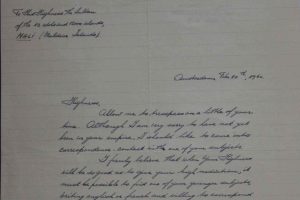 To His Highness the Sultan
of the
MALI (Maldive Islands)
Amsterdam, Feb. 20th, 19
Highness,
Allow me to trespass on a little of your
time. Although I am very sorry to have not yet
been in your empire, I should like to come into
correspondence contact with one of your subjects.
I firmly believe that when Your Highness
will be so good as to give your high mediation, it
must be possible to find one of your younger subjects
writing english or french and willing to correspond